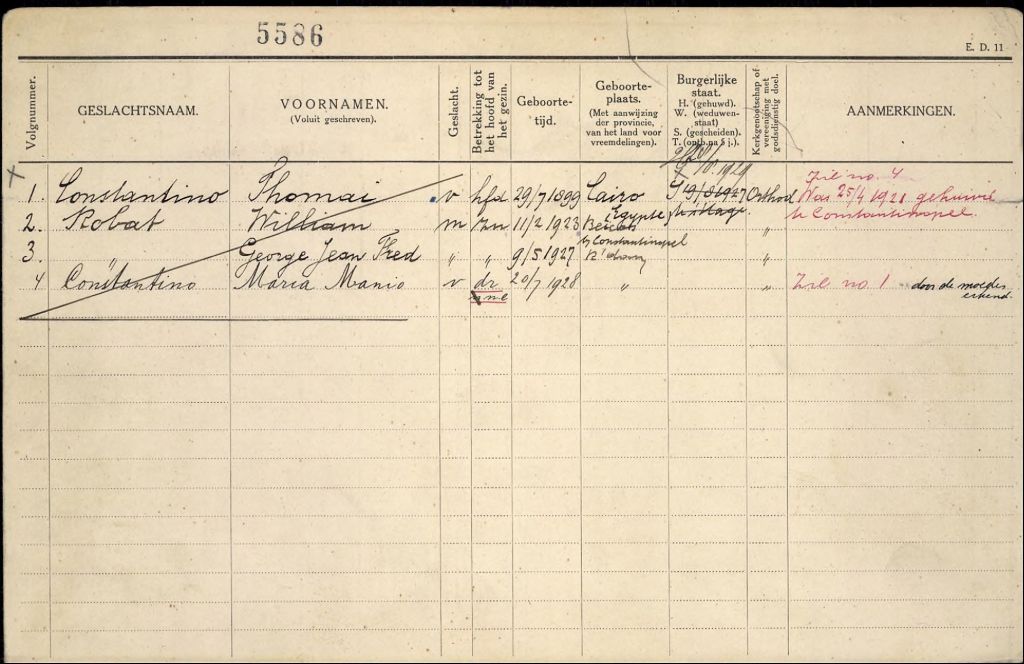 5586
E. D. 11
Volgnummer.
GESLACHTSNAAM.
VOORNAMEN.
(Voluit geschreven).
Geslacht.
Betrekking tot
het hoofd van
het gezin.
Geboorte-
tijd.
Geboorte-
plaats.
(Met aanwijzing
der provincie,
van het land voor
vreemdelingen).
Burgerlijke
staat.
H. (gehuwd).
W. (weduwen-
staat)
S. (gescheiden).
T. (ontb. na 5 j.).
Kerkgenootschap of
vereeniging met
godsdienstig doel.
AANMERKINGEN.
Zie no. 4
1. Constantino Thomai v hfd 29/7 1899 Cairo S 19/8 1927 Orthod Was 25/4 1921 gehuwd
Egypte te Constantinopel.
2. Robat William m zn 11/2 1923 "
bij Constantinopel
3. " George Jean Fred " " 9/5 1927 R'dam "
4 Constantino Maria Manio v dr 20/7 1928 " " Zie no 1 door de moeder
erkend.